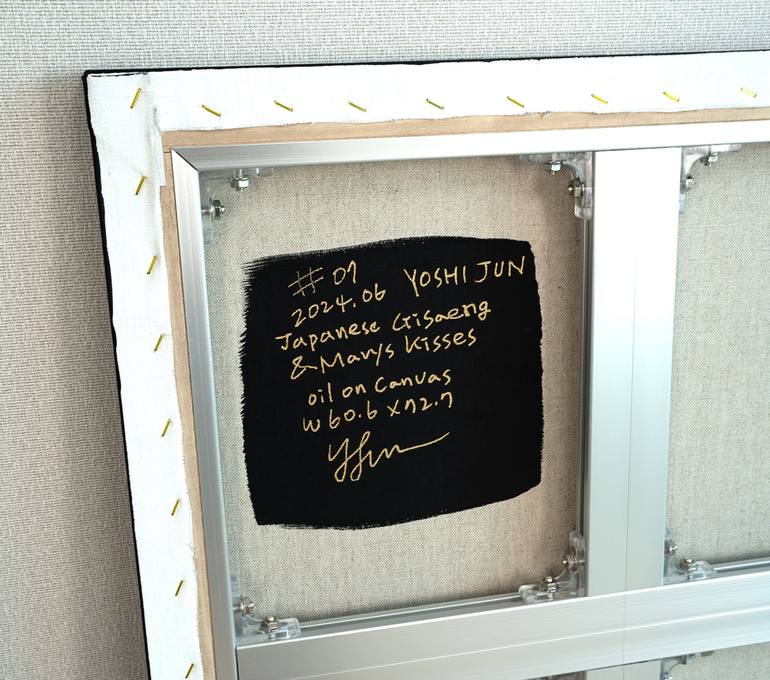 # 07
2024.06 YOSHI JUN
Japanese Gisaeng
& Many's Kisses
oil on canvas
W 60.6 x 72.7